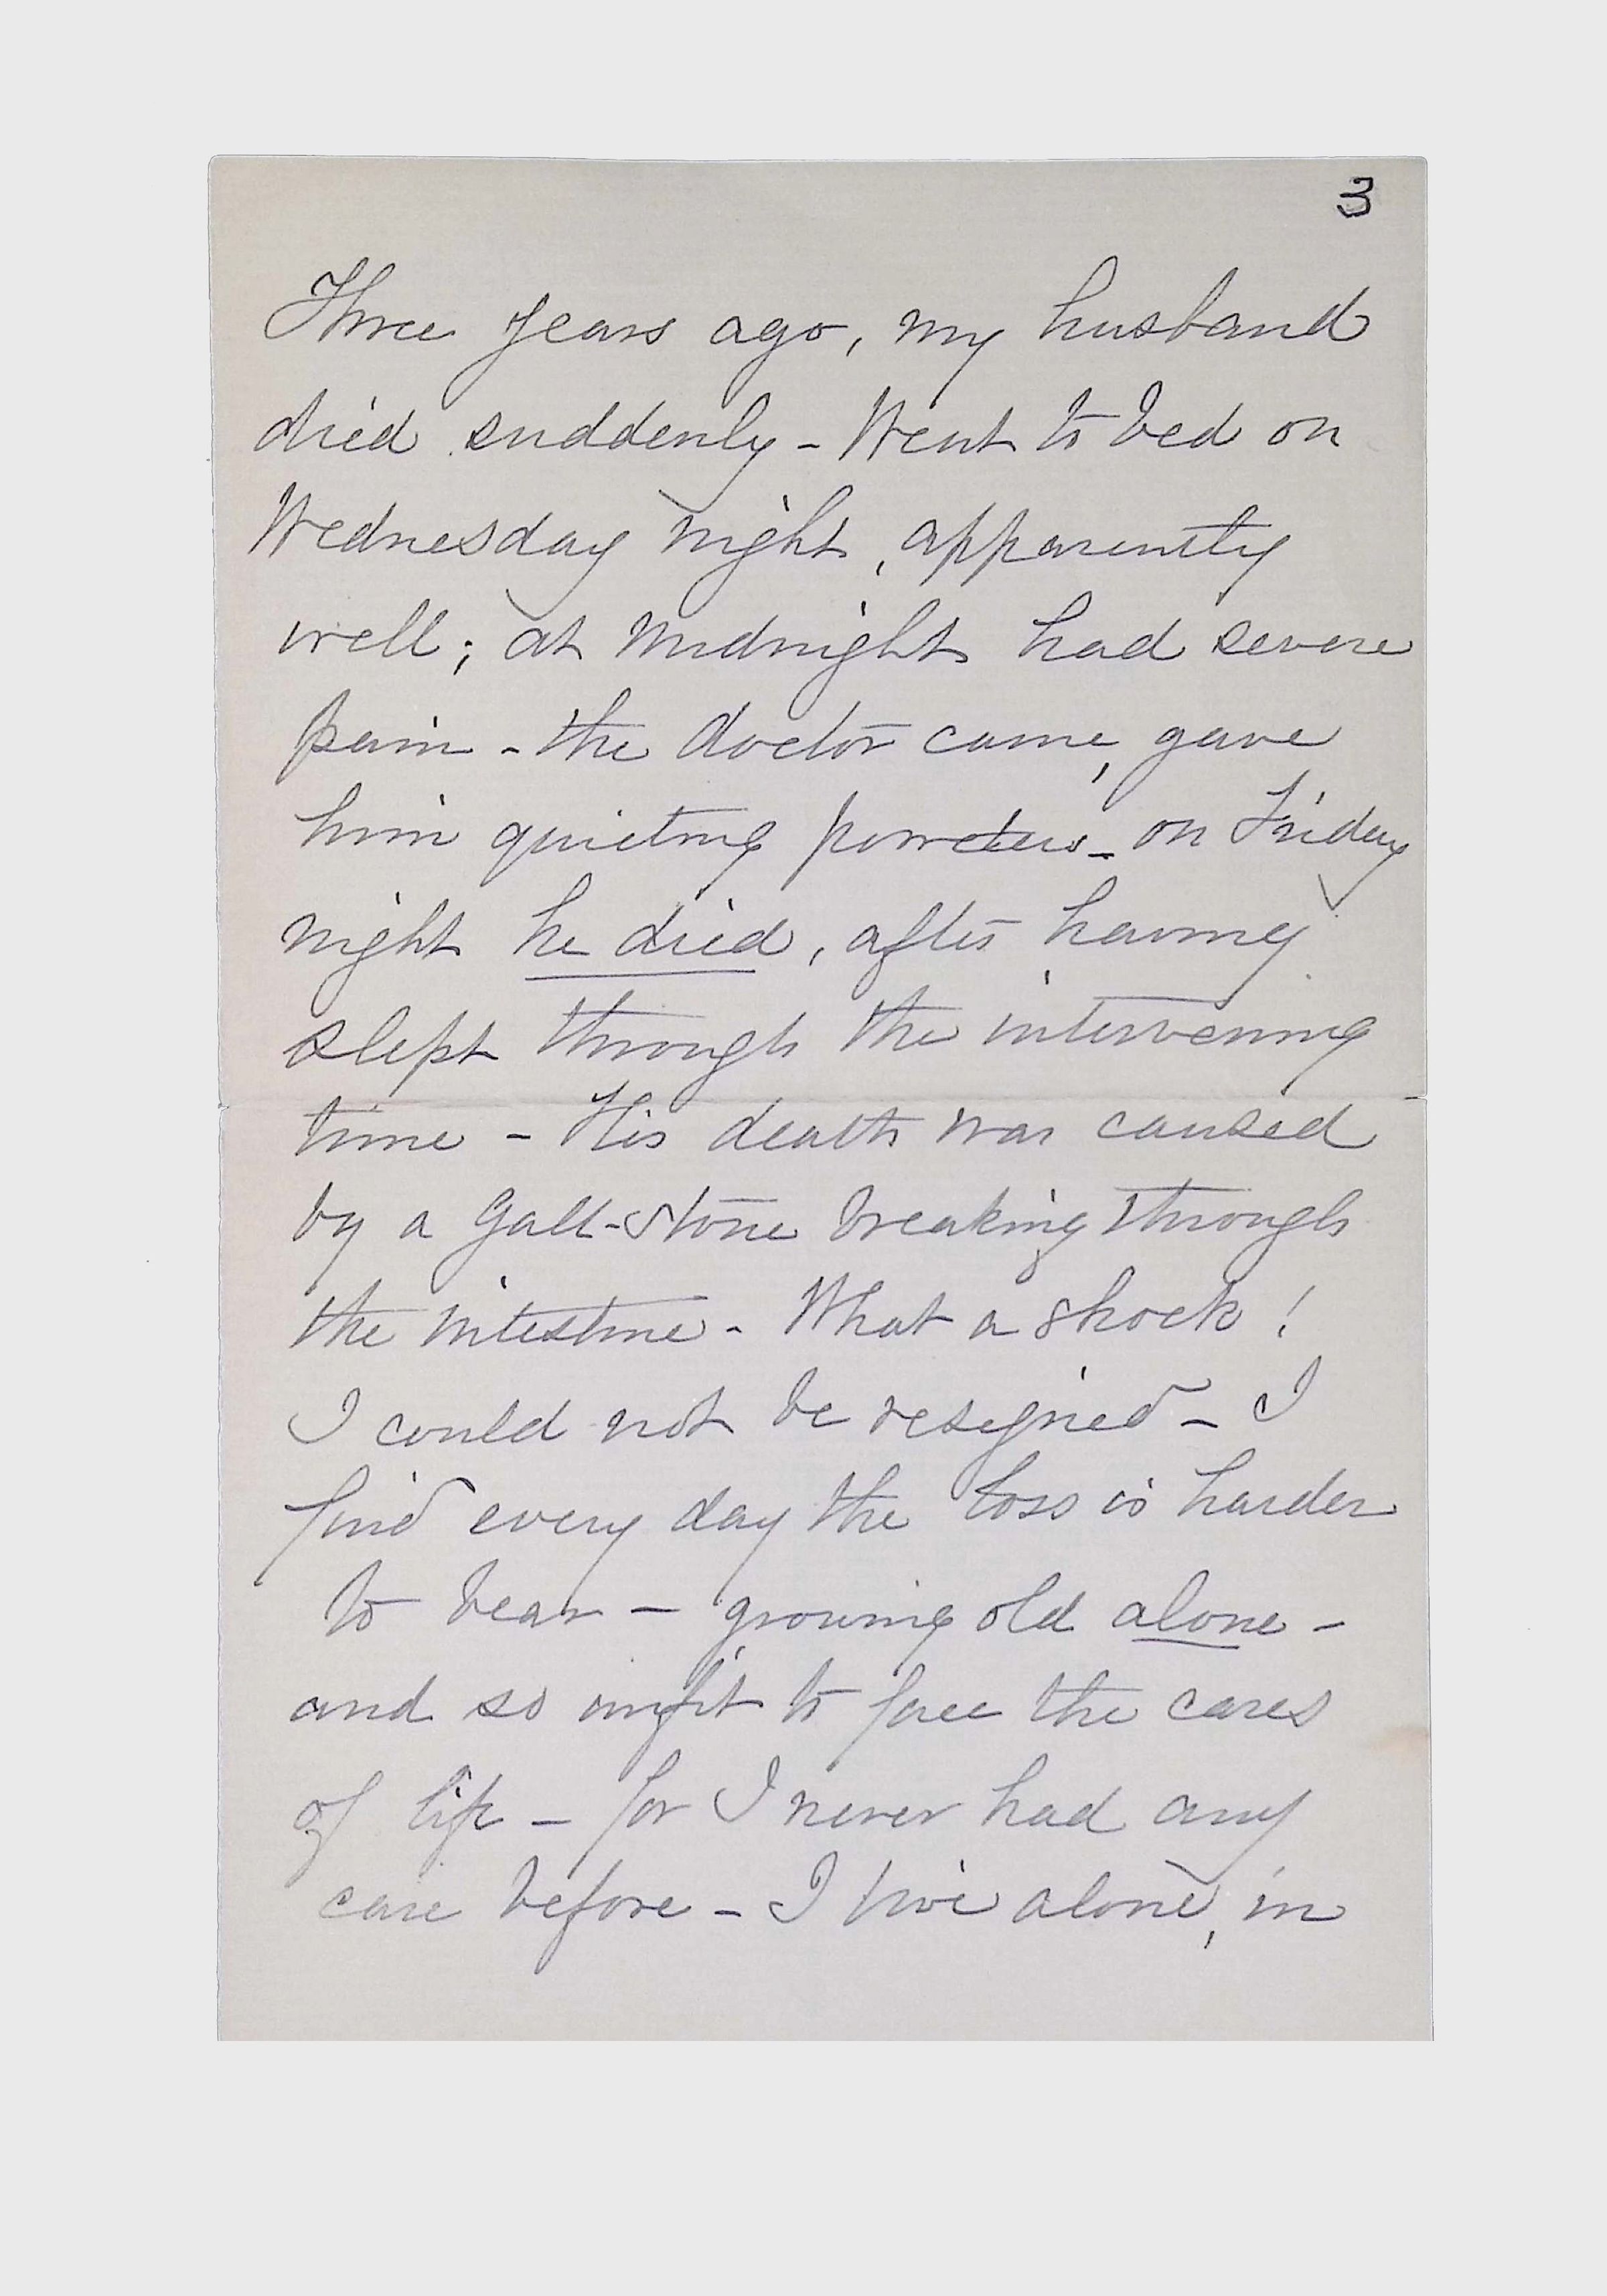 3
Three years ago, my husband
died suddenly - Went to bed on
Wednesday night, apparently
well; at midnight had severe
pain - the doctor came, gave
him quieting powders - on Friday
night he died, after having
slept through the intervening
time - His death was caused
by a Gall-stone breaking through
the intestine - What a shock!
I could not be resigned - I
find every day the loss is harder
to bear - growing old alone -
and so unfit to face the cares
of life - for I never had any
care before - I live alone, in